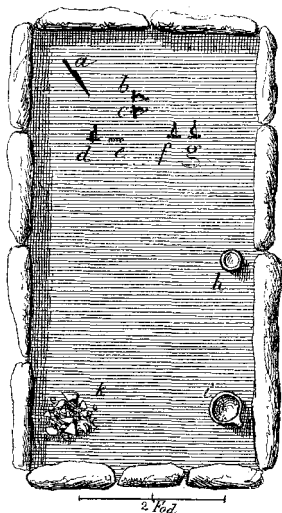 a
b
c
d e f g
h
k i
2 Fod.